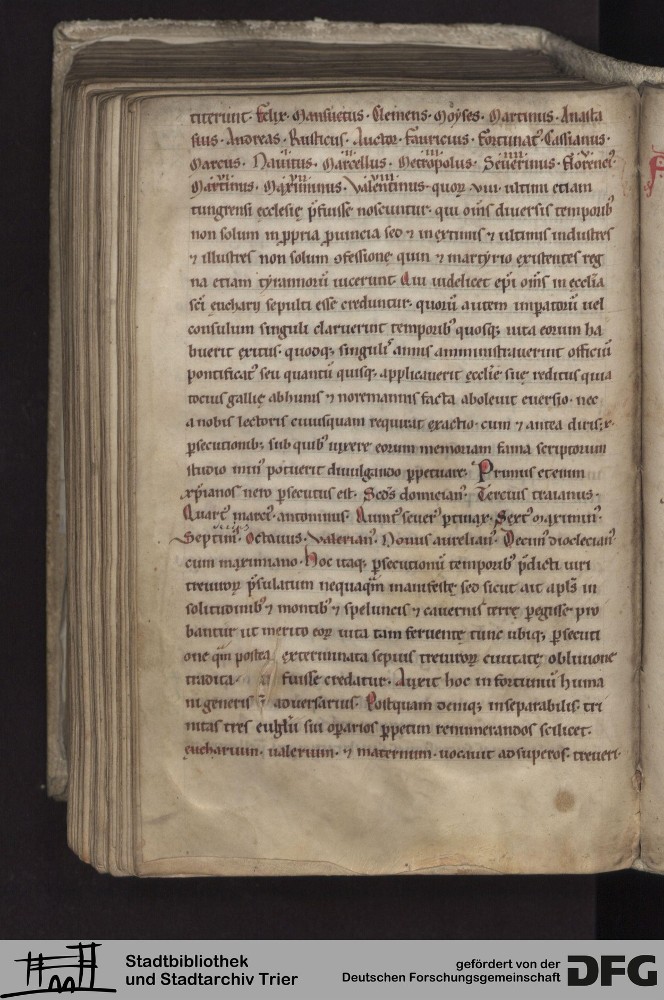 titerunt. Felix. Mansuetus. Clemens. Moyses. Martinus. Anasta
sius. Andreas. Rusticus. Auctor. Fauricius. Fortunat᷒. Cassianus.
Marcus. Nauitus. Marcellus. Metropolus. Seuerinus. Florenci᷒.
Martinus. Maximinus. Valentinus. quoꝝ. viii. ultimi etiam
tungrensi ęcclesię p̄fuisse noscuntur. qui om̄s diuersis temporib᷒
non solum in ꝓpria ꝓuincia sed & in extimis & ultimis industres
& illustres non solum ꝯfessione quin & martyrio existentes reg
na etiam tyrannorū uicerunt. Qui uidelicet ep̄i om̄s in ęcclīa
sc̄i eucharii sepulti esse creduntur. quorū autem imꝑatorū uel
consulum singuli claruerint temporib᷒ quosq; uita eorum ha
buerit exitus. quodq; singuli᷒ annis amministrauerint officiū
pontificat᷒ seu quantū quisq; applicauerit ęccl̄ie suę reditus quia
tocius gallię ab hunis & noremannis facta aboleuit euersio. nec
a nobis lectoris cuiusquam requirat exactio. cum & antea
ꝑsecutionib; sub quib᷒ uixere eorum memoriam fama scriptorum
studio min᷒ potuerit diuulgando ꝑpetuare. Primus etenim
xp̄ianos nero ꝑsecutus est. Sc̄ds domician᷒. Tercius traianus.
Quart᷒ marc᷒. antoninus. Quint᷒ seuer᷒ ꝑtinax. Sext᷒ maximin᷒.
Septim᷒. Octauus. Valerian᷒. Nonus aurelian᷒. Decim᷒ dioclecian᷒
cum maximiano. Hoc itaq; ꝑsecutionū temporib᷒ p̄dicti uiri
treuiroꝝ p̄sulatum nequaq̄m manifestę sed sicut ait apl̄s in
solitudinib᷒ & montib᷒ & speluncis & cauernis terrę ꝑegisse pro
bantur ut merito eoꝝ uita tam feruente tunc ubiq; ꝑsecuti
one q̄m postea exterminata sepius treuiroꝝ ciuitatę obliuione
tradita fuisse credatur. Auxit hoc infortuniū huma
ni generis aduersarius. Postquam deniq; inseparabilis tri
nitas tres euḡlii sui oꝑarios ꝑpetim remunerandos scilicet.
eucharium. ualerium. & maternum. uocauit ad superos. treueri.
Stadtbibliothek
und Stadtarchiv Trier
gefördert von der
Deutschen Forschungsgemeinschaft
DFG